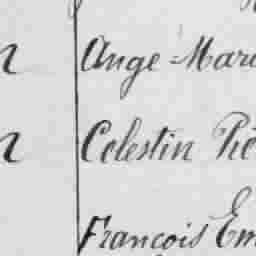 n Ange-Mari
n Celestin Pie
François Em